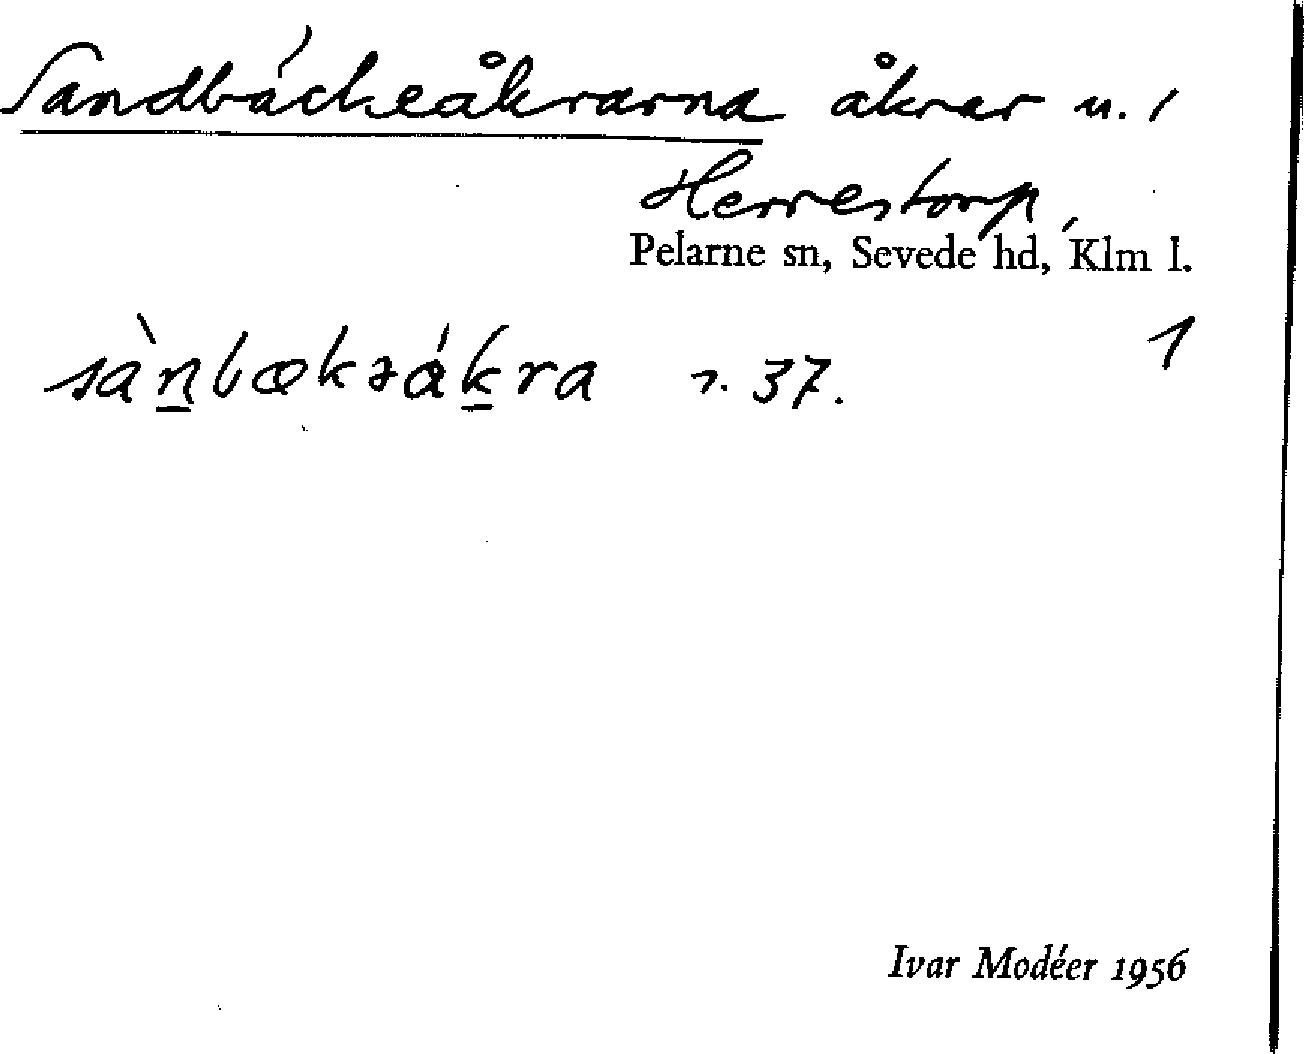 Sandbäckeåkrarna åkrar u. 1
Herrestorp,
Pelarne sn, Sevede hd, Klm l.
1
sàn̲bækəák̲ra r. 37.
Ivar Modéer 1956